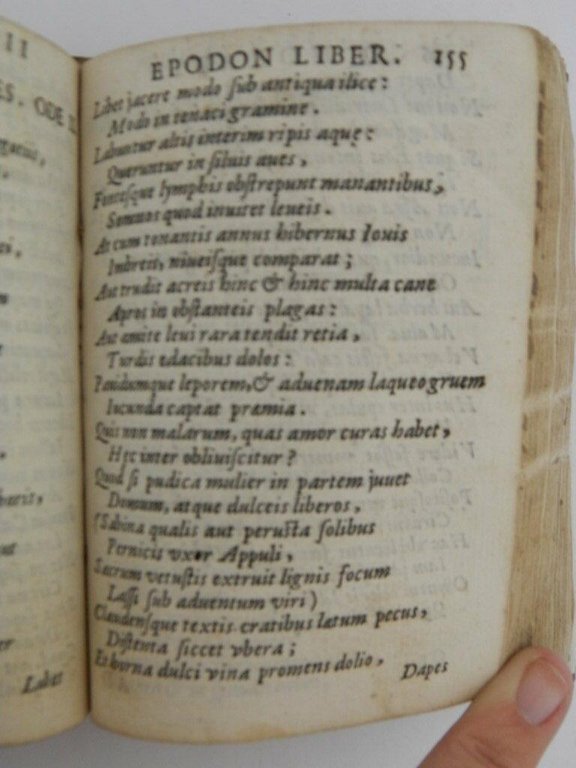 II
ES. ODE II
EPODON LIBER. 155
Libet jacere modo sub antiqua ilice:
Modo in tenaci gramine.
Labuntur altis interim ripis aquę:
Queruntur in siluis aues,
Fontesque lymphis obstrepunt manantibus,
Somnos quod inuitet leueis.
At cum tonantis annus hibernus Iouis
Imbreis, niueisque comparat;
Aut trudit acreis hinc & hinc multa cane
Apros in obstanteis plagas:
Aut amite leui rara tendit retia,
Turdis edacibus dolos:
Pauidumque leporem, & aduenam laqueo gruem
Iucunda captat præmia.
Quis non malarum, quas amor curas habet,
Hęc inter obliuiscitur?
Quod si pudica mulier in partem juuet
Domum, atque dulceis liberos,
(Sabina qualis aut perusta solibus
Pernicis vxor Appuli,
Sacrum vetustis extruit lignis focum
Lassi sub aduentum viri)
Claudensque textis cratibus lætum pecus,
Distenta siccet vbera;
Et horna dulci vina promens dolio,
Dapes
Libet